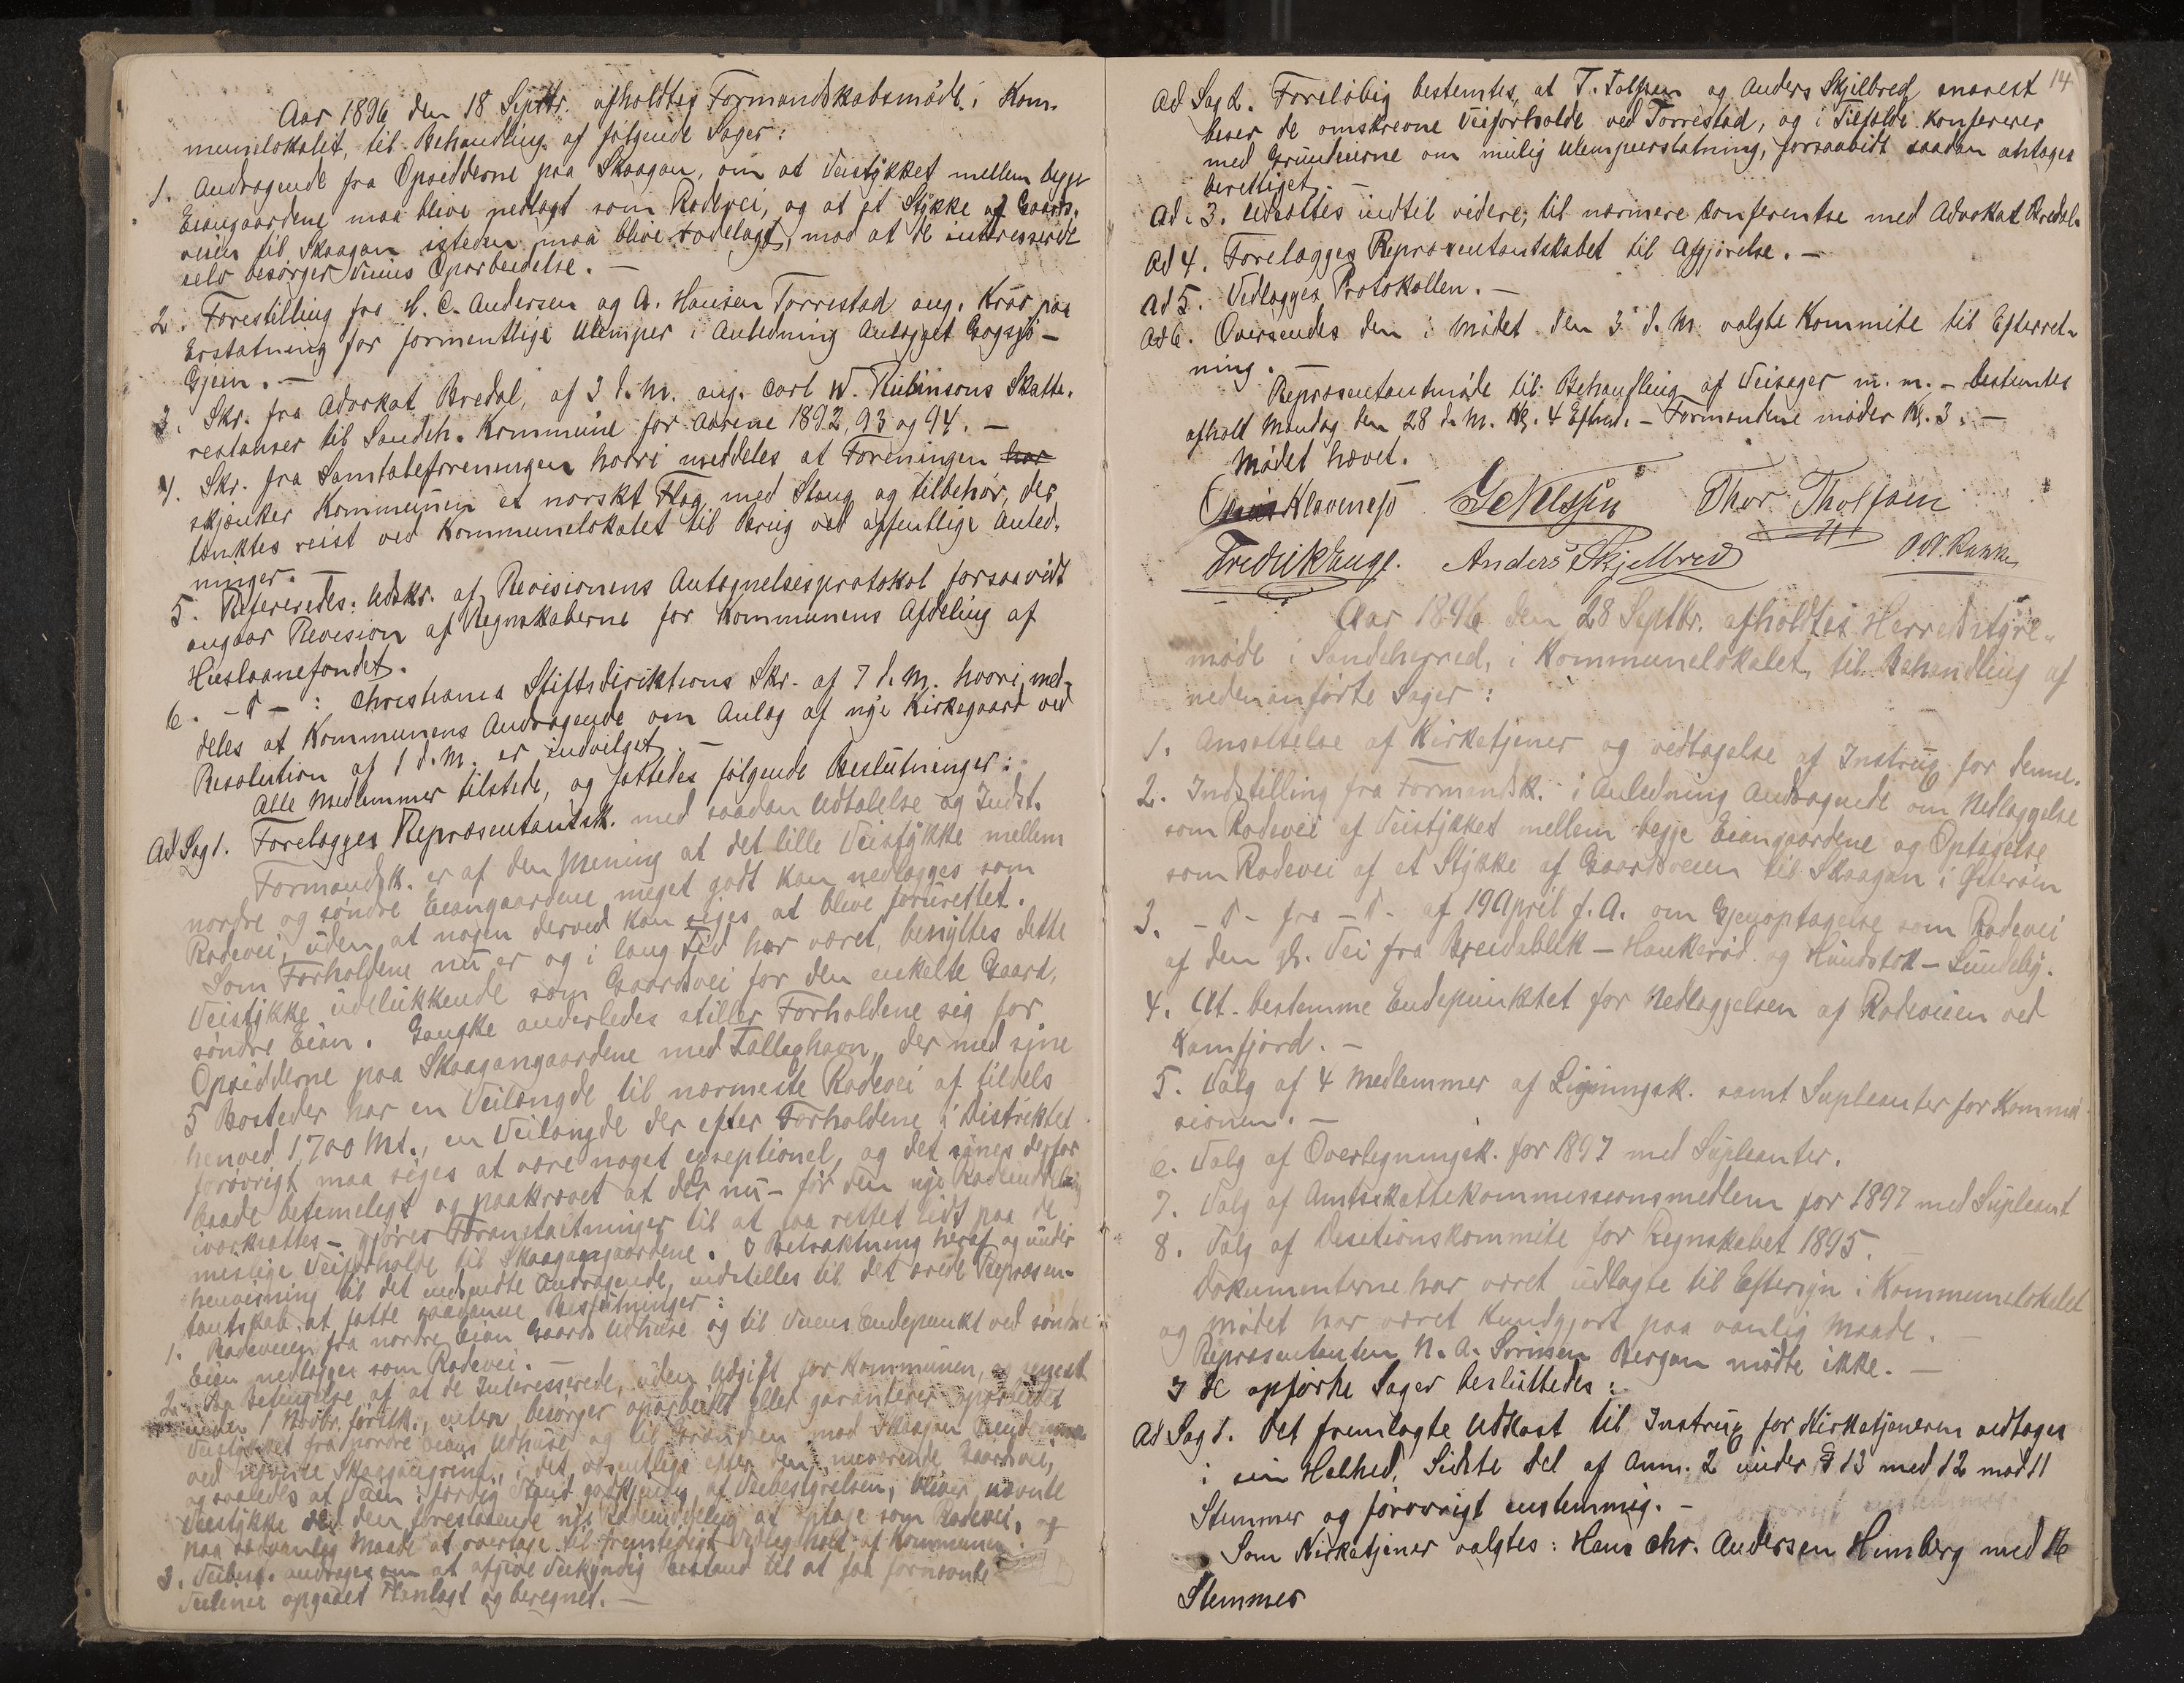 Aar 1896 den 18 Septbr. afholdtes Formandskabsmøde i Kom-
munelokalet, til Behandling af følgende Sager:
1. Andragende fra Opsidderne paa Skaagan, om at Veistykket mellem begge
Eiangaardene maa blive nedlagt som Rodevei, og at et Stykke af Gaards-
veien til Skaagan isteden maa blive rodelagt, mod at de interesserede
selv besørger Veiens Oparbeidelse. —
2. Forestilling fra H. C. Andersen og A. Hansen Torrestad ang. Krav paa
Erstatning for formentlige Ulemper i Anledning Anlægget Gogsjø –
Gjein. —
3. Skr. fra Advokat Bredal, af 3 d. M. ang. Carl W. Rubinsons Skatte-
restanser til Sandeh. Kommune for Aarene 1892, 93 og 94. —
4. Skr. fra Samtaleforeningen hvori meddeles at Foreningen har
skjænker Kommunen et norskt Flag med Stang og tilbehør, der
tænktes reist ved Kommunelokalet til Brug ved offentlige Anled-
ninger. —
5. Refereredes: Udskr. af Revisionens Antegnelsesprotokol forsaavidt
angaar Revision af Regnskaberne for Kommunens Afdeling af
Huslaanefondet.
6. – " – : Christiania Stiftsdirektions Skr. af 7 d. M. hvori med-
deles at Kommunens Andragende om Anlæg af nye Kirkegaard ved
Resolution af 1 d. M. er indvilget. —
Alle Medlemmer tilstede, og fattedes følgende Beslutninger:
Ad Sag 1. Forelægges Repræsentantsk. med saadan Udtalelse og Indst.
Formandsk. er af den Mening at det lille Veistykke mellem
nordre og søndre Eiangaardene meget godt kan nedlægges som
Rodevei, uden at nogen derved kan siges at blive forurettet.
Som Forholdene nu er og i lang Tid har været, benyttes dette
Veistykke udelukkende som Gaardsvei for den enkelte Gaard,
søndre Eian. Ganske anderledes stiller Forholdene sig for
Opsidderne paa Skaagangaardene med Fallaghavn, der med sine
5 Bosteder har en Veilængde til nærmeste Rodevei af tildels
henved 1,700 Mt., en Veilængde der efter Forholdene i Distriktet
forøvrigt maa siges at være noget exseptionel, og det synes derfor
baade beleieligt og paakrævet at der nu – før den nye Rodeinddeling
iværksættes – gjøres Foranstaltninger til at faa rettet lidt paa de
meslige Veiforholde til Skaagangaardene. I Betraktning heraf og under
henvisning til det indsendte Andragende, indstilles til det ærede Repræsen-
tantskab at fatte saadanne Beslutninger:
1. Rodeveien fra nordre Eian Gaards Udhuse og til Veiens Endepunkt ved søndre
Eian nedlægges som Rodevei. —
2. Paa Betingelse af at de Interesserede, uden Udgift for Kommunen, og senest
inden 1 Novbr. førstk., enten besørger oparbeidet eller garanterer oparbeidet
Veistykket fra nordre Eians Udhuse og til Grændsen mod Skaagan
ved nævnte Skaagangrind, i det væsentlige efter den nuværende Gaardsvei,
og saaledes at Veien i færdig Stand godkjendes af Veibestyrelsen, bliver nævnte
Veistykke ved den forestaaende nye Rodeinddeling at optage som Rodevei, og
paa sædvanlig Maade at overtage til fremtidigt Vedligehold af Kommunen.
3. Veibest. andrages om at afgive Veikyndig Bistand til at faa fornævnte
Veilinie opgaaet Planlagt og beregnet. —
14
Ad Sag 2. Foreløbig bestemtes, at T. Tolfsen og Anders Skjelbred snarest
beser de omskrevne Veiforholde ved Torrestad, og i Tilfælde konfererer
med Grundeierne om mulig Ulempeerstatning, forsaavidt saadan antages
berettiget. —
Ad. 3. Udsættes indtil videre, til nærmere Conferentse med Advokat Bredal.
Ad 4. Forelægges Repræsentantskabet til Afgjørelse. —
Ad 5. Vedlægges Protokollen. —
Ad 6. Oversendes den i Mødet den 3 d. M. valgte Kommite til Efterret-
ning. —
Repræsentantmøde til Behandling af Veisager m. m. – bestemtes
afholdt Mandag den 28 d. M. Kl. 4 Efterm. – Formændene møder Kl. 3. —
Mødet hævet.
Klaveness Nelssen Thor Tholfsen
Fredrik Hauge. Anders Skjelbred
Aar 1896 den 28 Septbr. afholdtes Herredsstyre-
møde i Sandeherred, i Kommunelokalet, til Behandling af
nedenanførte Sager:
1. Ansættelse af Kirketjener og vedtagelse af Instrux for denne.
2. Indstilling fra Formandsk. i Anledning Andragende om Nedlæggelse
som Rodevei af Veistykket mellem begge Eiangaardene og Optagelse
som Rodevei af et Stykke af Gaardsveien til Skaagan i Østerøen
3. – " – fra – " – af 19 April f. A. om Gjenoptagelse som Rodevei
af den gl. Vei fra Breidablik – Haukerød og Hundstok – Sundeby.
4. At bestemme Endepunktet for Nedlæggelsen af Rodeveien ved
Kamfjord. —
5. Valg af 4 Medlemmer af Ligningsk. samt Supleanter for Kommis-
sionen. —
6. Valg af Overligningsk. for 1897 med Supleanter.
7. Valg af Amtsskattekommissionsmedlem for 1897 med Supleant
8. Valg af Desitionskommite for Regnskabet 1895. —
Dokumenterne har været udlagte til Eftersyn i Kommunelokalet
og Mødet har været Kundgjort paa vanlig Maade. —
Repræsentanten N. A. Sørensen Bergan mødte ikke. —
I de opførte Sager besluttedes:
Ad Sag 1. Det fremlagte Udkast til Instrux for Kirketjeneren vedtages
i sin Helhed, Sidste Del af Anm. 2 under § 13 med 12 mod 11
Stemmer og forøvrigt enstemmig. —
Som Kirketjener valgtes: Hans Chr. Andersen Himberg med 16
Stemmer